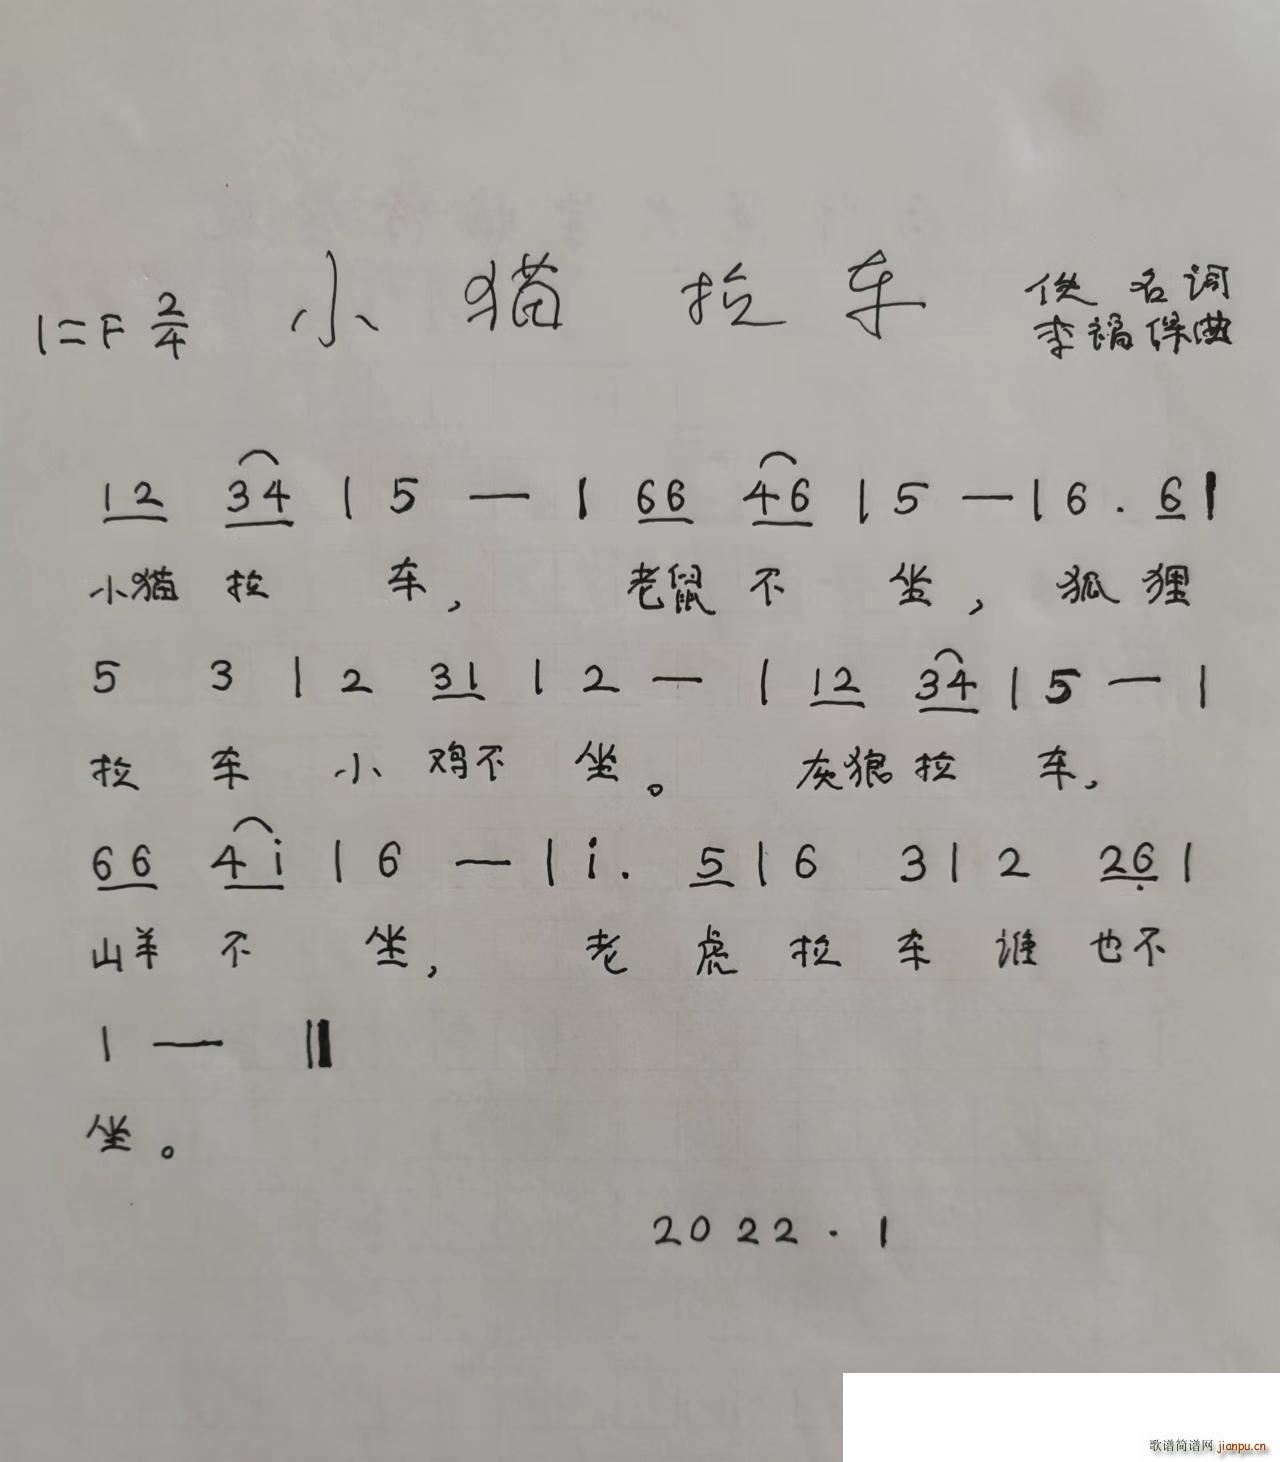 1=F 2/4 小猫拉车 佚名词
李福保曲
12 34 | 5 — | 66 46 | 5 — | 6 . 6 |
小猫 拉 车， 老鼠 不 坐， 狐 狸
5 3 | 2 31 | 2 — | 12 34 | 5 — |
拉 车 小 鸡不 坐。 灰狼 拉 车，
66 4i | 6 — | i . 5 | 6 3 | 2 26̣ |
山羊 不 坐， 老 虎 拉 车 谁 也不
1 — ‖
坐。
2022.1
歌谱简谱网 jianpu.cn